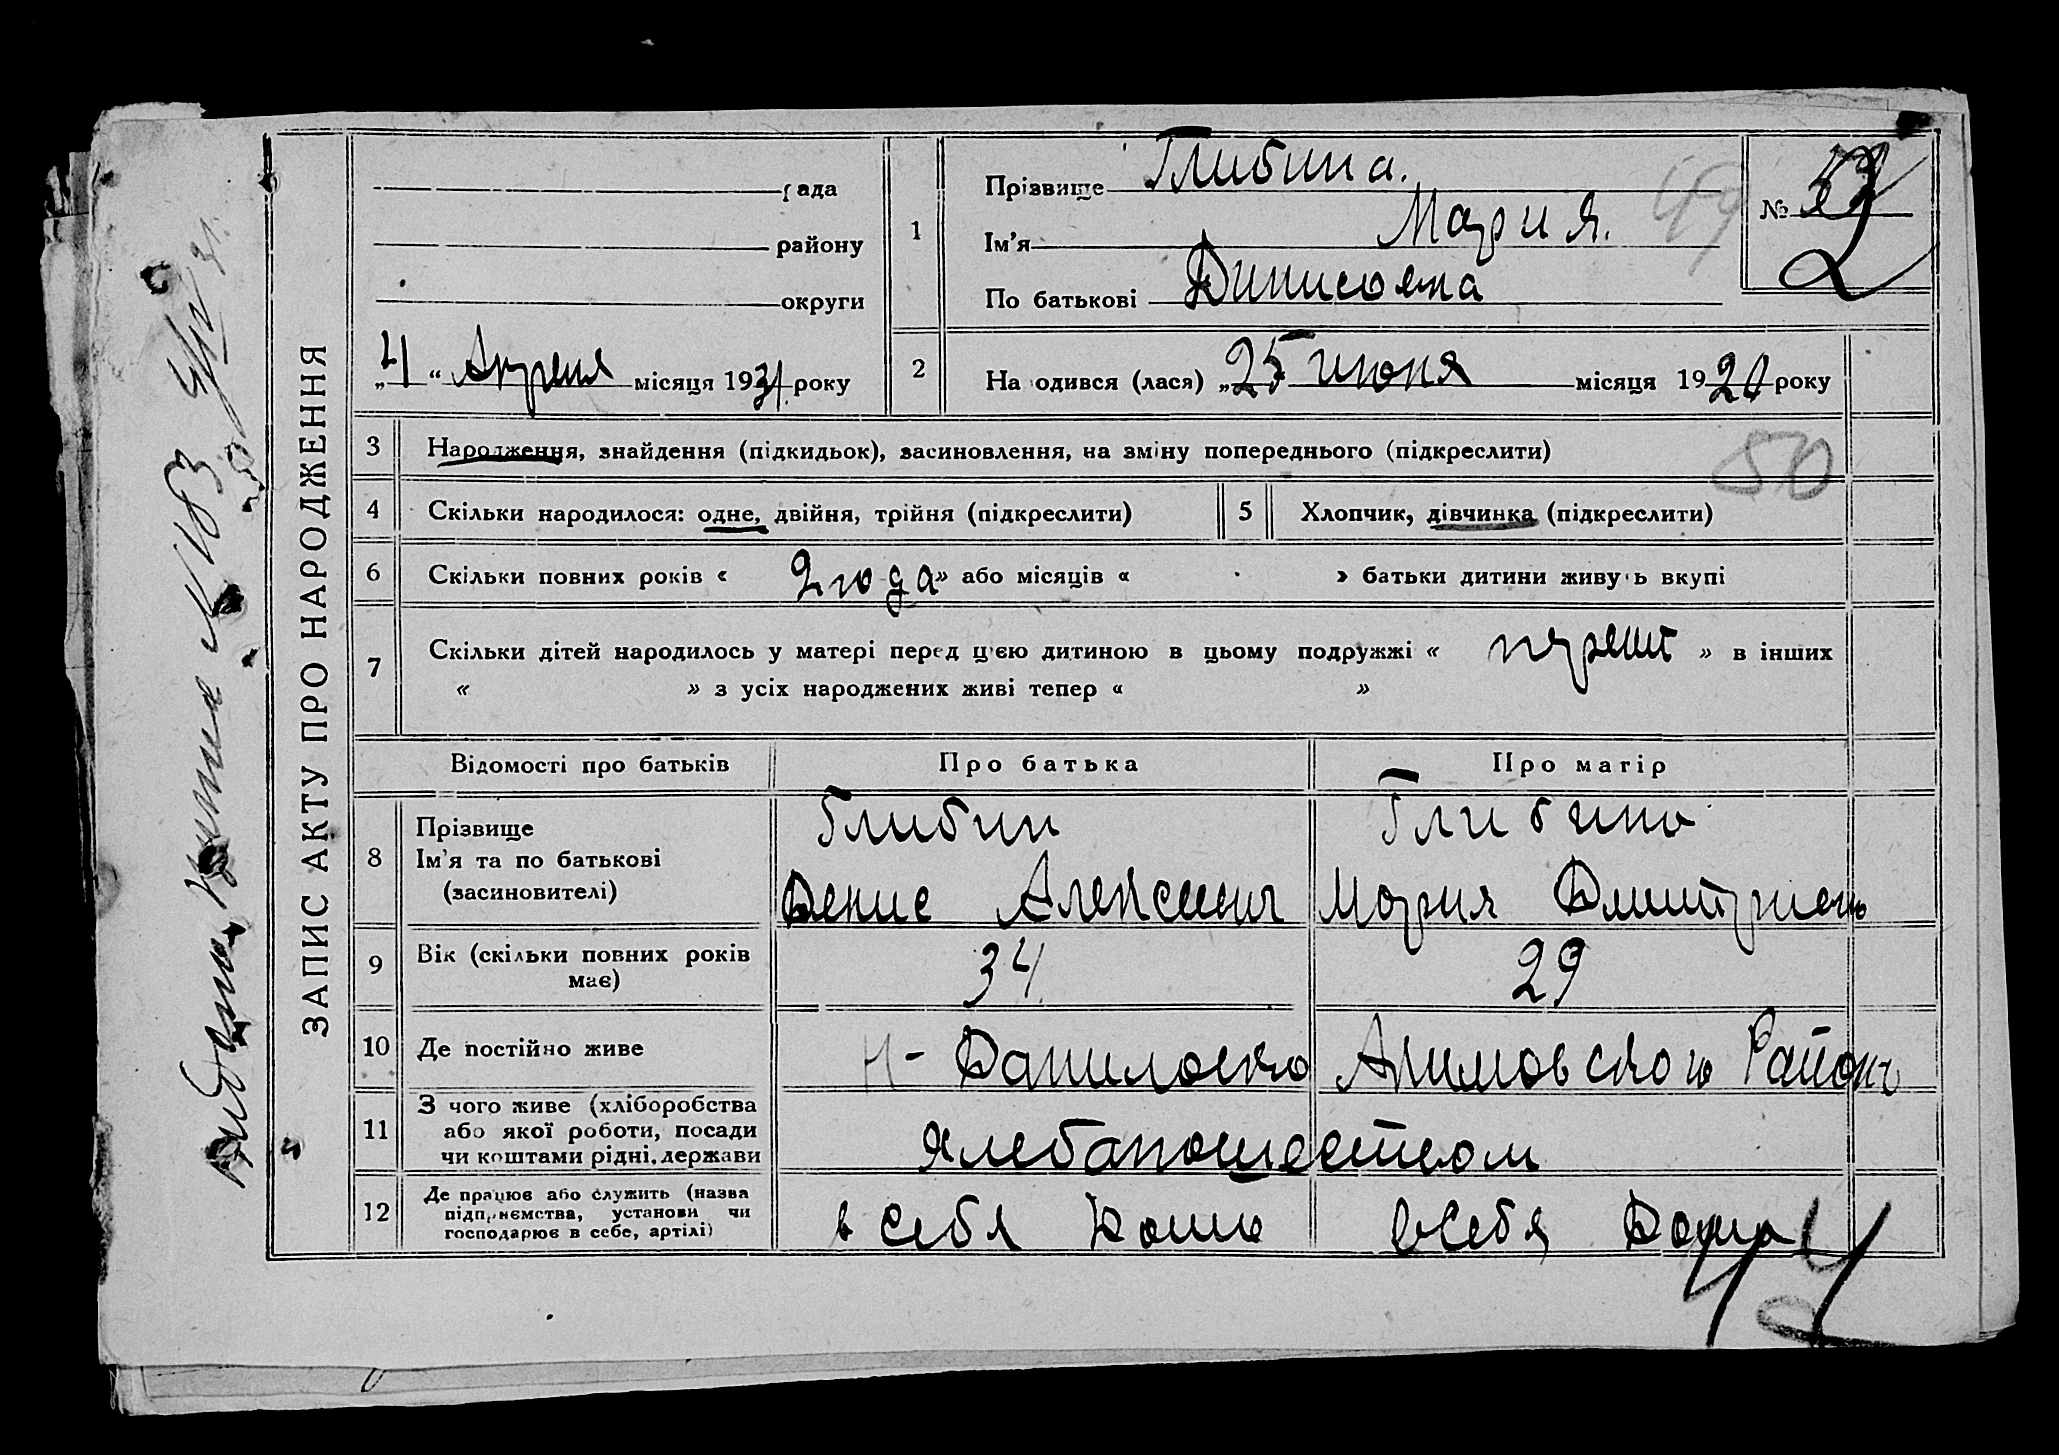 ЗАПИС АКТУ ПРО НАРОДЖЕННЯ
рада
району
округи
„4“ Апреля місяця 1931 року
1
Прізвище Глибина.
Ім’я Мария.
По батькові Динисовна
№ 2
49
2
На одився (лася) „25 июня місяця 19 року
3 Народження, знайдення (підкидьок), засиновлення, на зміну попереднього (підкреслити)
50
4 Скільки народилося: одне, двійня, трійня (підкреслити) 5 Хлопчик, дівчинка (підкреслити)
6 Скільки повних років « 2 года» або місяців « » батьки дитини живуть вкупі
7 Скільки дітей народилось у матері перед ц'єю дитиною в цьому подружжі « » в інших
« » з усіх народжених живі тепер « »
Відомості про батьків Про батька Про матір
8 Прізвище
Ім’я та по батькові
(засиновителі)
Глибин
Денис Алексеевич
Глибина
Мария Дмитриевн
9 Вік (скільки повних років має)
34
29
10 Де постійно живе
Н-Даниловко Акимовского Района
11 З чого живе (хліборобства
або якої роботи, посади
чи коштами рідні, держави
хлебапошеством
12 Де працює або служить (назва
підприємства, установи чи
господарює в себе, артілі)
в себя дома
в себя дома